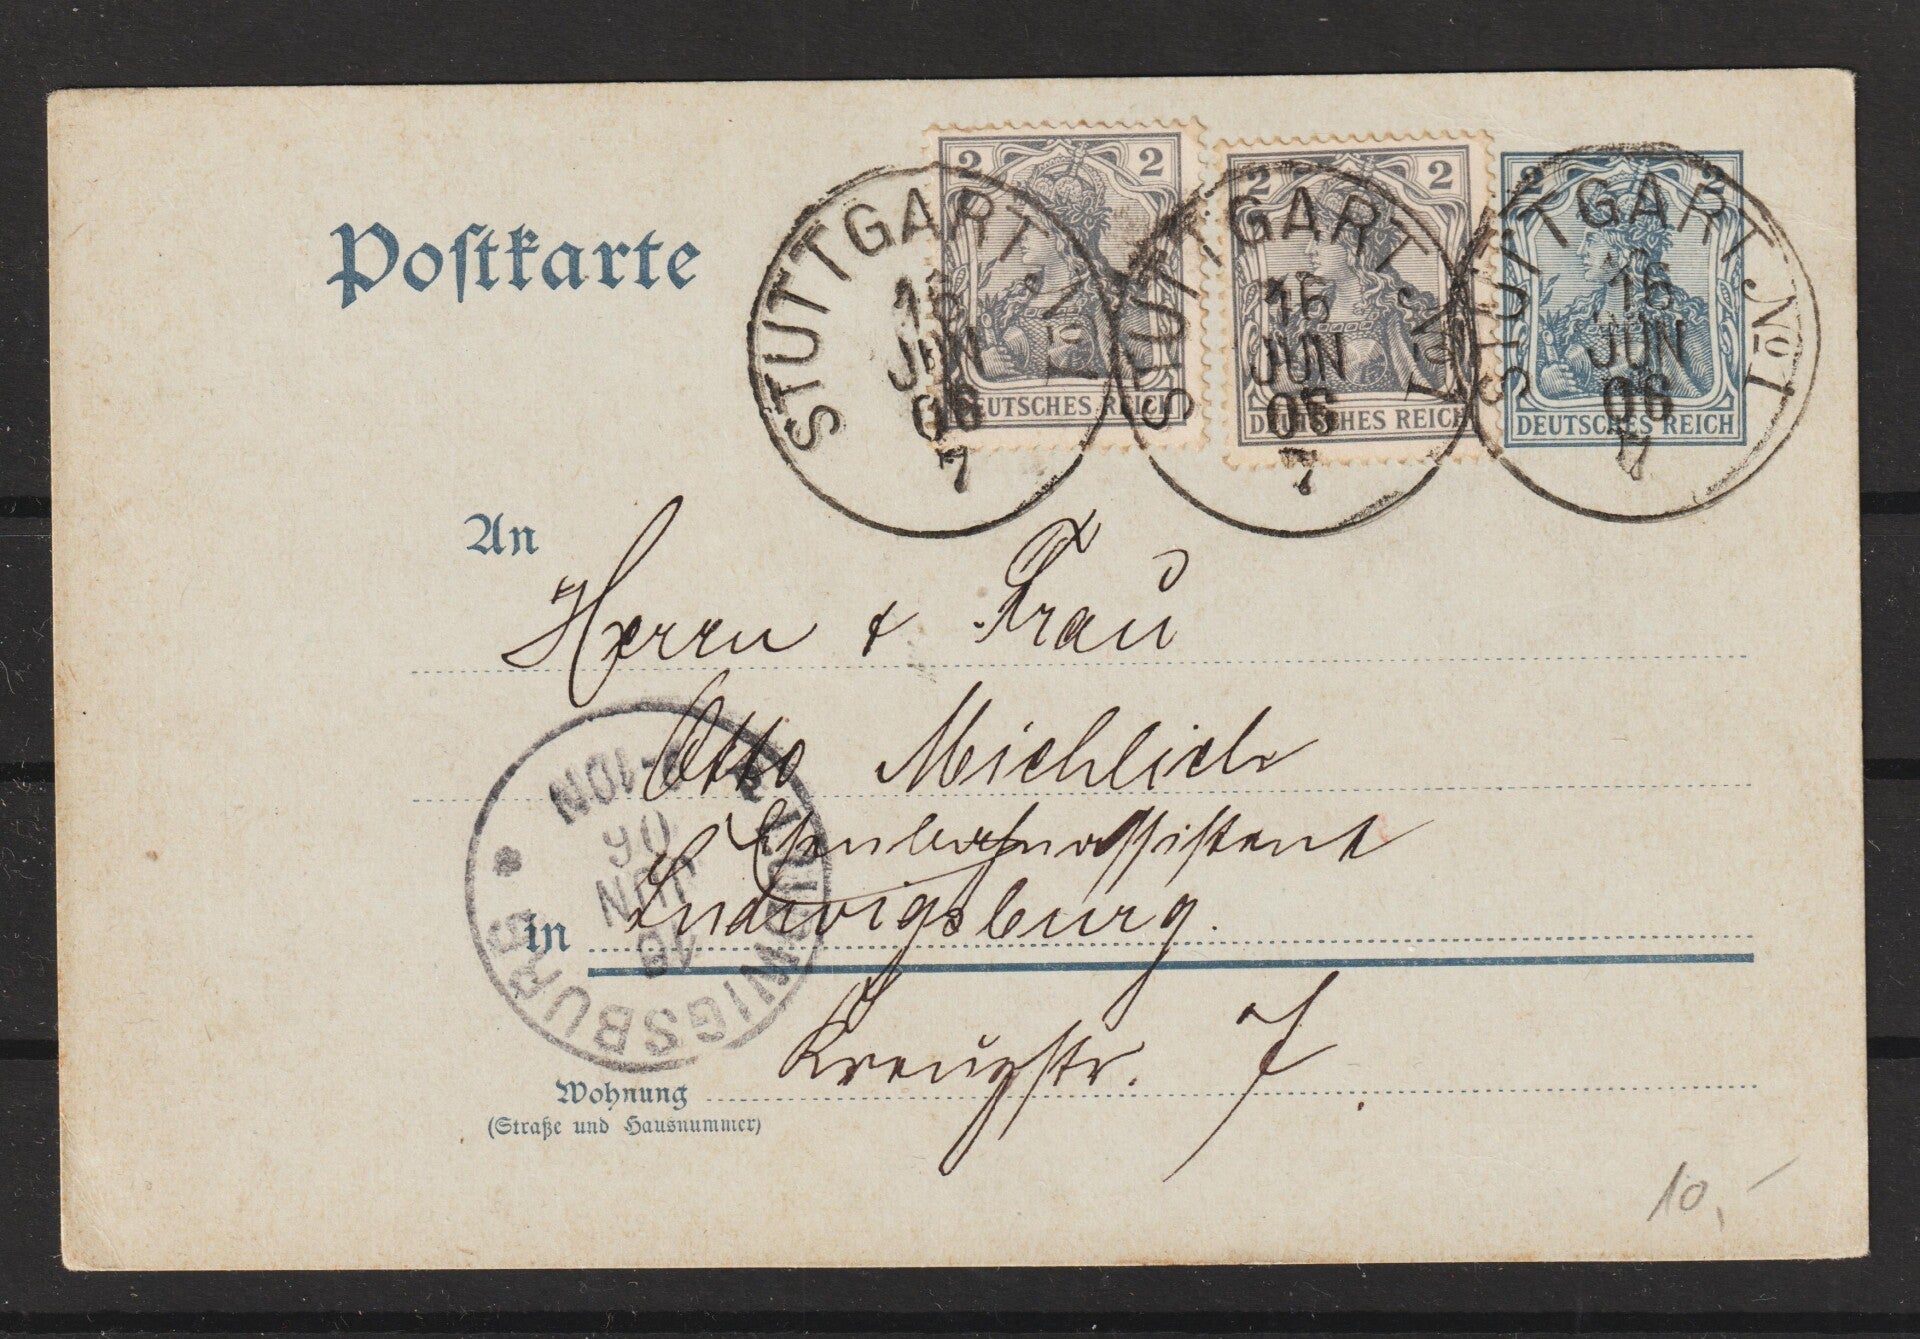 Postkarte
2 2
DEUTSCHES REICH
2 2
DEUTSCHES REICH
2 2
DEUTSCHES REICH
STUTTGART № 1
16
JUN
06
7
STUTTGART № 1
16
JUN
06
7
STUTTGART № 1
16
JUN
06
7
An
Herrn & Frau
Otto Michlich
Eisenbahnassistent
in Ludwigsburg.
Kreuzstr. 7.
LUDWIGSBURG
16
JUN
06
-10N
Wohnung
(Straße und Hausnummer)
10,-